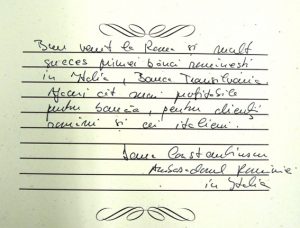 Bun venit la Roma și mult
succes primei bănci românești
în Italia, Banca Transilvania.
Afaceri cât mai profitabile
pentru bancă, pentru clienți
români și cei italieni.
Dana Constantinescu
Ambasadorul României
în Italia